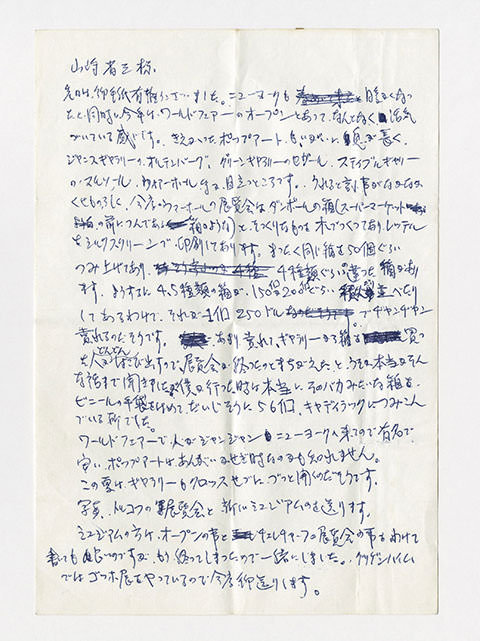 山崎省三様
先日は御手紙有難うございました。ニューヨークも 暖くなっ
たと同時に今年は、ワールドフェアーのオープンとあって、なんとなく活気
づいている感じです。きえかかったポップアートも いがいに息が長く、
ジャニスギャラリーの、オルデンバーグ、グリーンギャラリーのシガール、ステイブルギャラリー
の、ウォアーホール は目立つところです。うれると言う事がなかなか
くせもので、今度のウァーホールの展覧会はダンボールの箱(スーパーマーケット
の前につんである 箱のような)とそっくりなものを木でつくってあり、レッテル
をシルクスクリーンで、印刷してあります。まったく同じ箱を50個ぐらい
つみ上げてあり、 4種類ぐらいの違った箱があり
ます。ようするに4,5種類の箱が、150個200個ぐらい 並べたり
してあるわけで、それが1個250ドル でジャンジャン
売れるのだそうです。 あまり売れて、ギャラリーから箱を 買っ
た人がどんどんはこび出すので、展覧会は終ったのとまちがえた、と、うその本当みたいな
な話まで聞きましたが、僕が行った時に本当に、そのバカみたいな箱を
ビニールの手袋をはめて、だいじそうに56個、キャディラックにつみこん
でいる所でした。
ワールドフェアーで、人がジャンジャン ニューヨークへ来るので有名で
安い、ポップアートはあんがいかせぎ時なのかも知れません。
この夏は、ギャラリーもクロースせずに、ずっと開くのだそうです。
写真、トルコつの展覧会と新しいミュージアムのを送ります。
ミュージアムの方は、オープンの事と 展覧会の事をわけて
書いても良いのですが、もう終ってしまったので一緒にしました。グッゲンハイム
ではゴッホ展をやっているので今度御送りします。